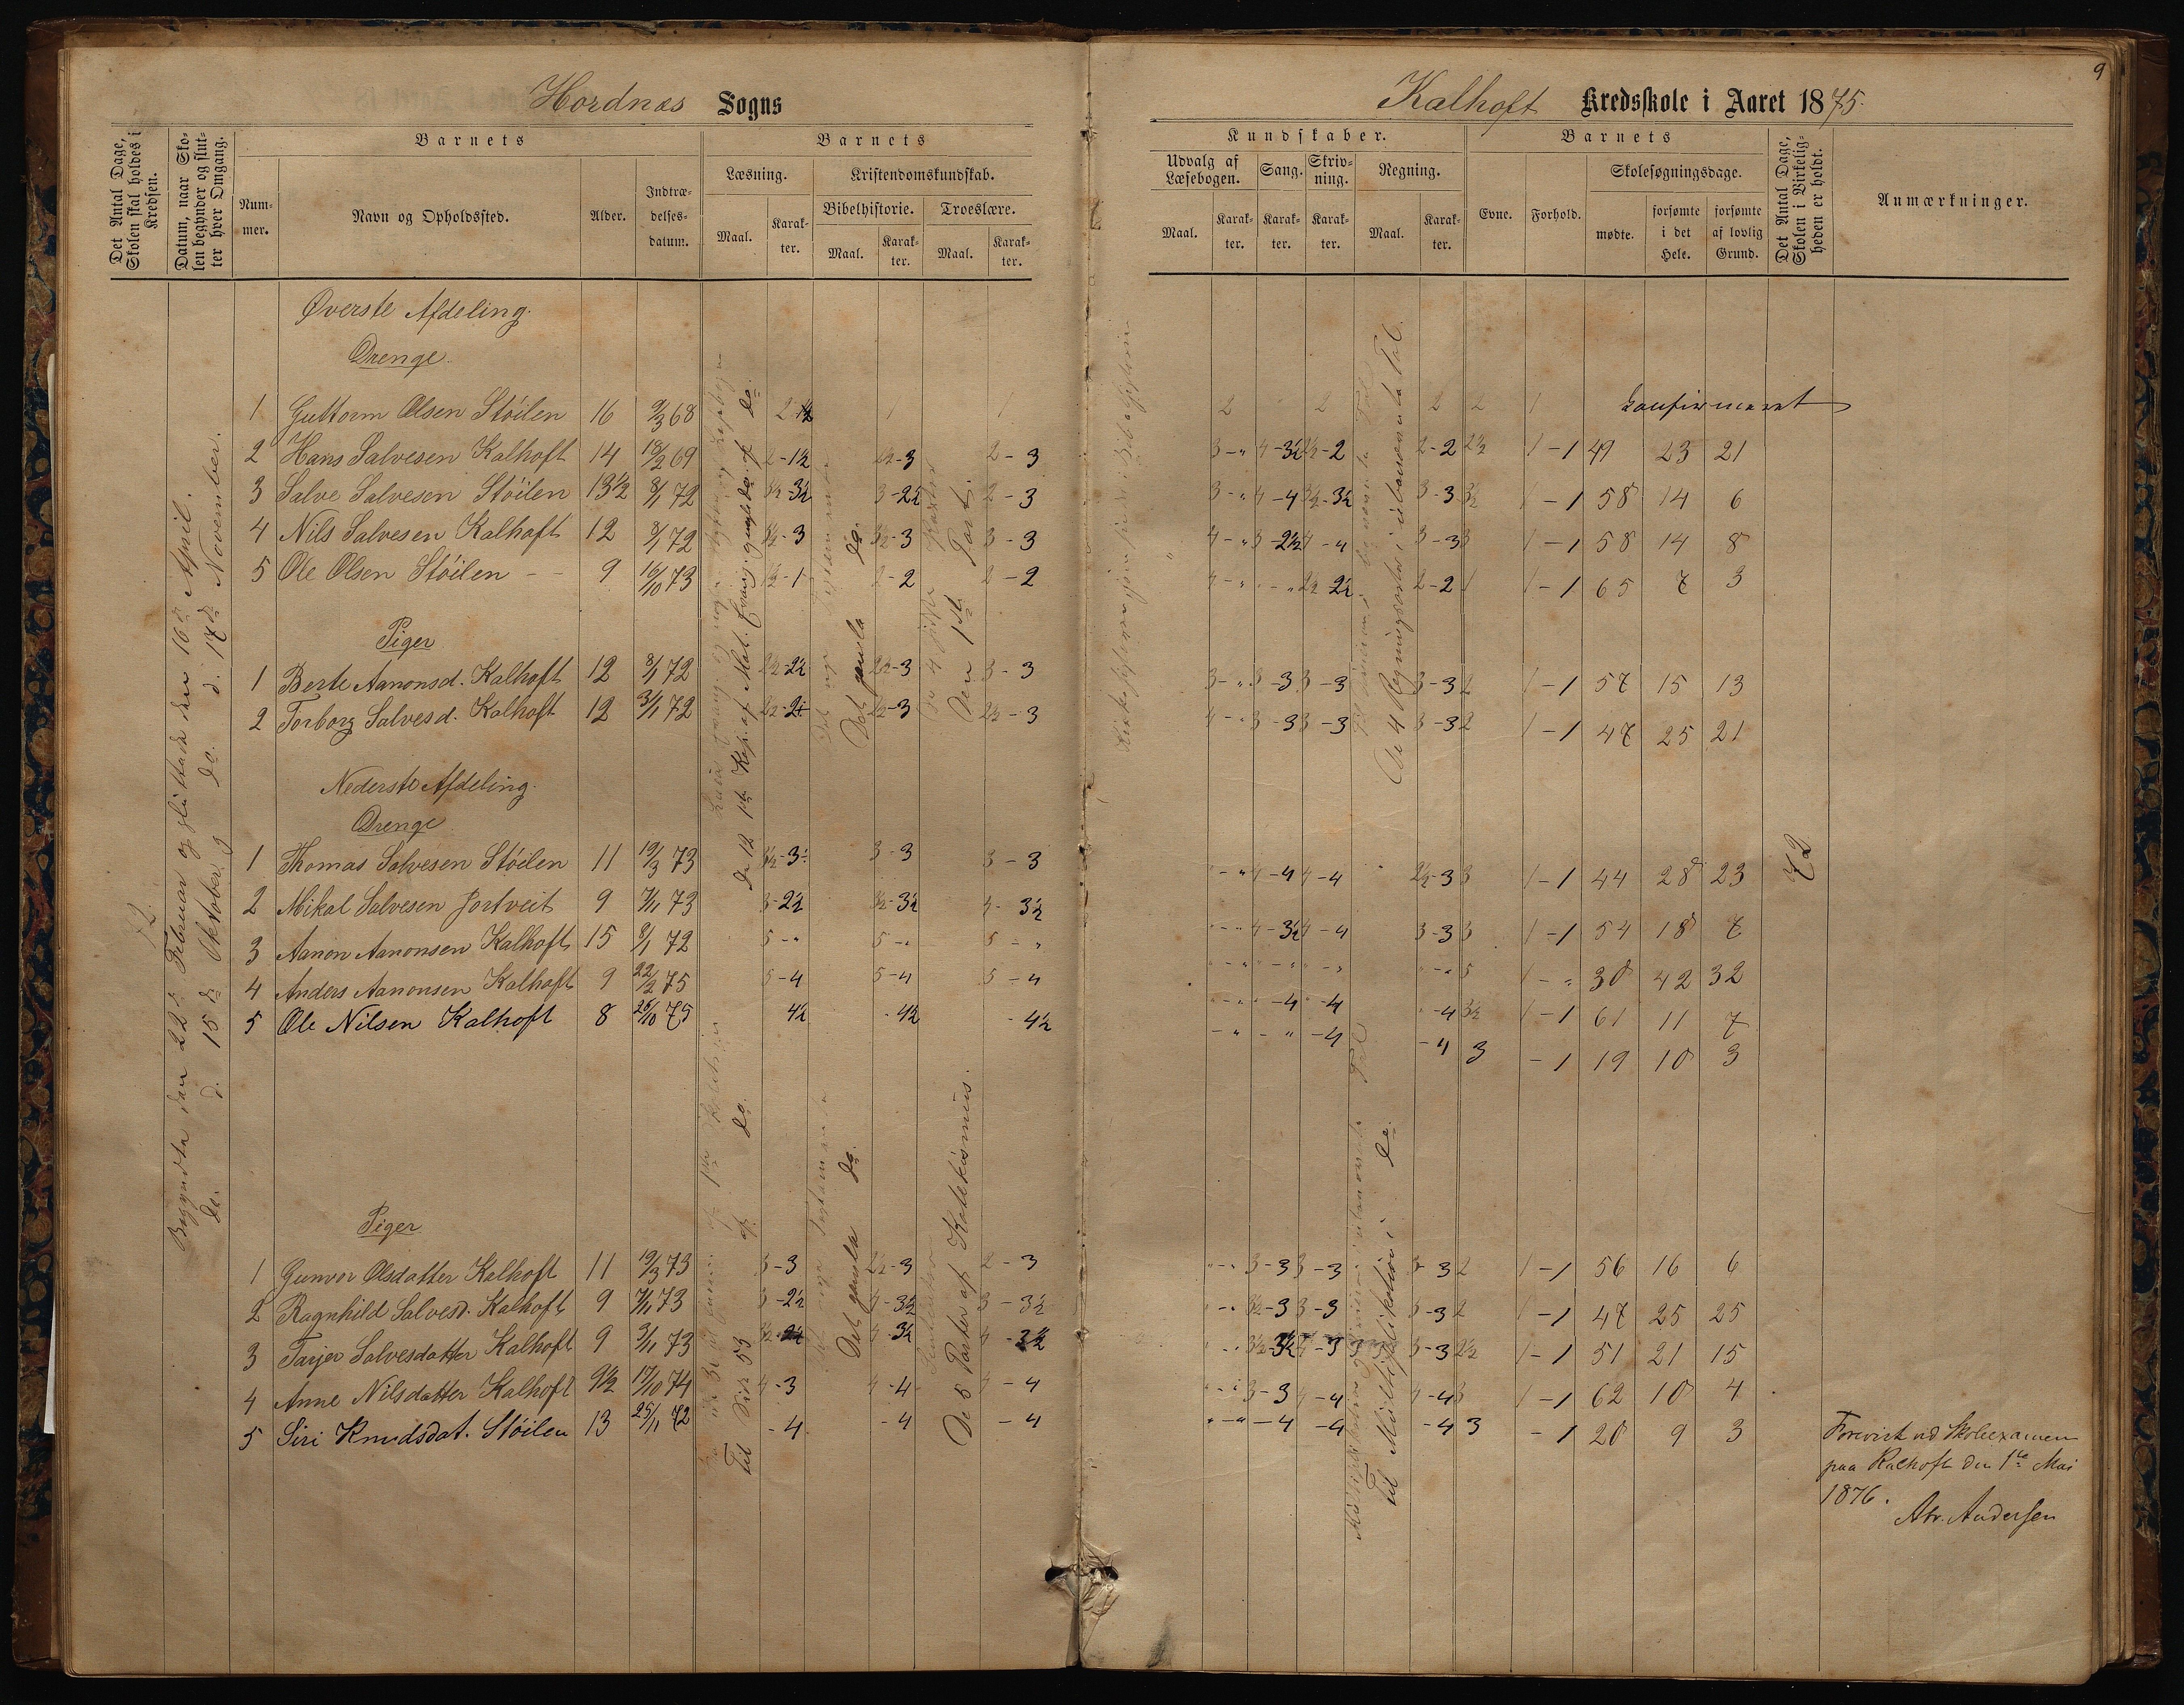 Hordnæs Sogns
Det Antal Dage, Skolen skal holdes i Kredsen.
Datum, naar Skolen begynder og slutter hver Omgang.
Barnets
Nummer.
Navn og Opholdssted.
Alder.
Indtrædelsesdatum.
Barnets
Læsning.
Maal.
Karakter.
Kristendomskundskab.
Bibelhistorie.
Maal.
Karakter.
Troeslære.
Maal.
Karakter.
72.
Begyndte den 22de Februar og sluttede den 16de April.
do. d. 15de Oktober og do. d. 17de November.
Øverste Afdeling.
Drenge.
1 Guttorm Olsen Stöilen 16 9/3 68 1 1
2 Hans Salvesen Kalhoft 14 18/2 69 2-1½ 2½-3 2-3
3 Salve Salvesen Stöilen 13½ 8/1 72 3½-3½ 3-2½ 2-3
4 Nils Salvesen Kalhoft 12 8/1 72 3½-3 3½-3 3-3
5 Ole Olsen Stöilen - - 9 16/10 73 1½-1 2-2 2-2
Piger
1 Berte Aanonsd. Kalhoft 12 8/1 72 2½-2½ 2½-3 3-3
2 Torborg Salvesd. Kalhoft 12 3/1 72 2½-3 2½-3
De 12 1ste Kap. af Mat. Evang. gungldo. af do.
Det gamla do.
Den 1ste Part.
Nederste Afdeling.
Drenge
1 Thomas Salvesen Stöilen 11 19/3 73 3-3 3-3
2 Mikal Salvesen Jortveit 9 7/11 73 3-2½ 3½-3½ 4-3½
3 Aanon Aanonsen Kalhoft 15 8/1 72 5-" 5-" 5-"
4 Anders Aanonsen Kalhoft 9 22/2 75 5-4 5-4 5-4
5 Ole Nilsen Kalhoft 8 26/10 75 4½ -4½ -4½
Piger
1 Gunvor Olsdatter Kalhoft 11 19/3 73 3-3 2½-3 2-3
2 Ragnhild Salvesd. Kalhoft 9 7/11 73 3-2½ 4-3½ 3-3½
3 Tarjer Salvesdatter Kalhoft 9 3/11 73 4-3½ 4-3½
4 Anne Nilsdatter Kalhoft 9½ 17/10 74 4-3 4-4 4-4
5 Siri Knudsdat. Stöilen 13 25/11 72 -4 -4 -4
Til Side 53 af do.
Det gamla do.
De 5 Parter af Katekismus.
9
Kalhoft Kredsskole i Aaret 1875.
Kundskaber.
Udvalg af Læsebogen.
Maal.
Karakter.
Sang.
Karakter.
Skrivning.
Karakter.
Regning.
Maal.
Karakter.
Barnets
Evne.
Forhold.
Skolesøgningsdage.
mødte.
forsømte i det Hele.
forsømte af lovlig Grund.
Det Antal Dage, Skolen i Virkeligheden er holdt.
Anmærkninger.
2 2 2 2 1 konfirmeret
3-" 4-3½ 2½-2 2-2 2½ 1-1 49 23 21
3-" 4-4 3½-3½ 3-3 3½ 1-1 58 14 6
4-" 3-2½ 4-4 3-3 3 1-1 58 14 8
4-" -" 2½-2½ 2-2 1 1-1 65 7 3
3-" 3-3 3-3 3-3 2 1-1 57 15 13
4-" 3-3 3-3 3-3 2 1-1 47 25 21
De 4 Regningsarter i ubenævnte Tal.
"-" 4-4 4-4 2½-3 3 1-1 44 28 23
"-" 4-3½ 4-4 3-3 3 1-1 54 18 7
"-" "-" "-" "-" 5 1-" 30 42 32
"-" -4 -4 -4 3½ 1-1 61 11 7
-" -" -4 -4 3 -1 19 10 3
72
"-" 3-3 3-3 3-3 2 1-1 56 16 6
"-" 3½-3 3-3 3-3 2 1-1 47 25 25
"-" 3½-3½ 4-3 3-3 2½ 1-1 51 21 15
"-" 3-3 4-4 4-4 3 1-1 62 10 4
"-" -4 -4 -4 3 -1 20 9 3
til Multiplikation i do.
Forevist ved Skoleexamen
paa Kalhoft den 1ste Mai
1876.
Abr. Andersen